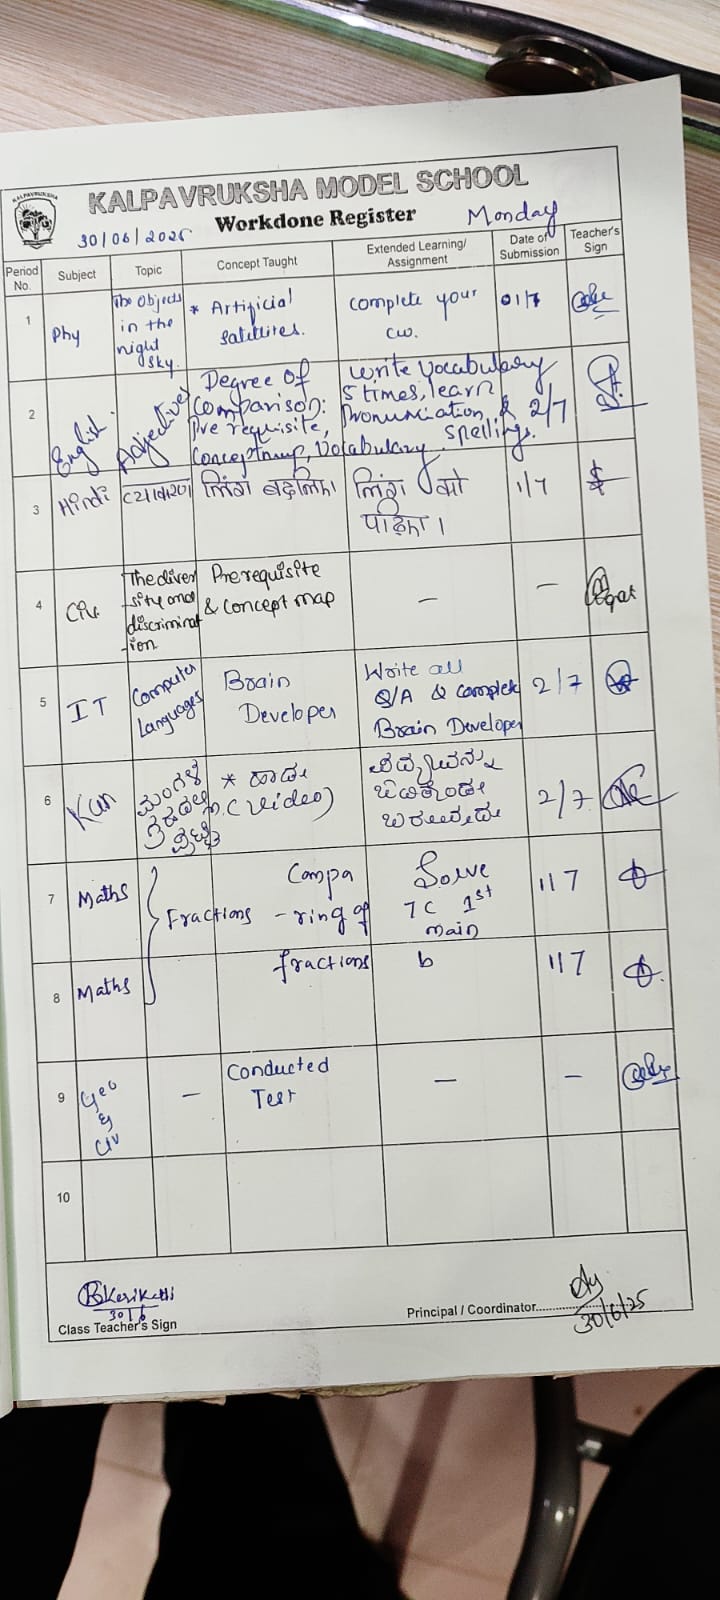 KALPAVRUKSHA MODEL SCHOOL
30/06/2025 Workdone Register Monday
Period No. Subject Topic Concept Taught Extended Learning/ Assignment Date of Submission Teacher's Sign
1 Phy The Objects in the night sky. * Artificial satellites. complete your cw. 01/7
2 English. Adjectives Degree of comparison: Pre requisite, conceptmap, Vocabulary write vocabulary 5 times, learn pronunciation & spellings. 2/7
3 Hindi लिंग बदलिए। लिंग को 1/7
4 Civ. The diversity and discrimination Prerequisite & concept map — —
5 IT Computer Languages Brain Developer Write all Q/A & complete Brain Developer 2/7
6 Kan * (video) 2/7
7 Maths Fractions Compa-ring of Solve 7C 1st main 1/7
8 Maths fractions b 1/7
9 Geo & Civ — Conducted Test — —
10
30/6
Class Teacher's Sign
Principal / Coordinator
30/6/25